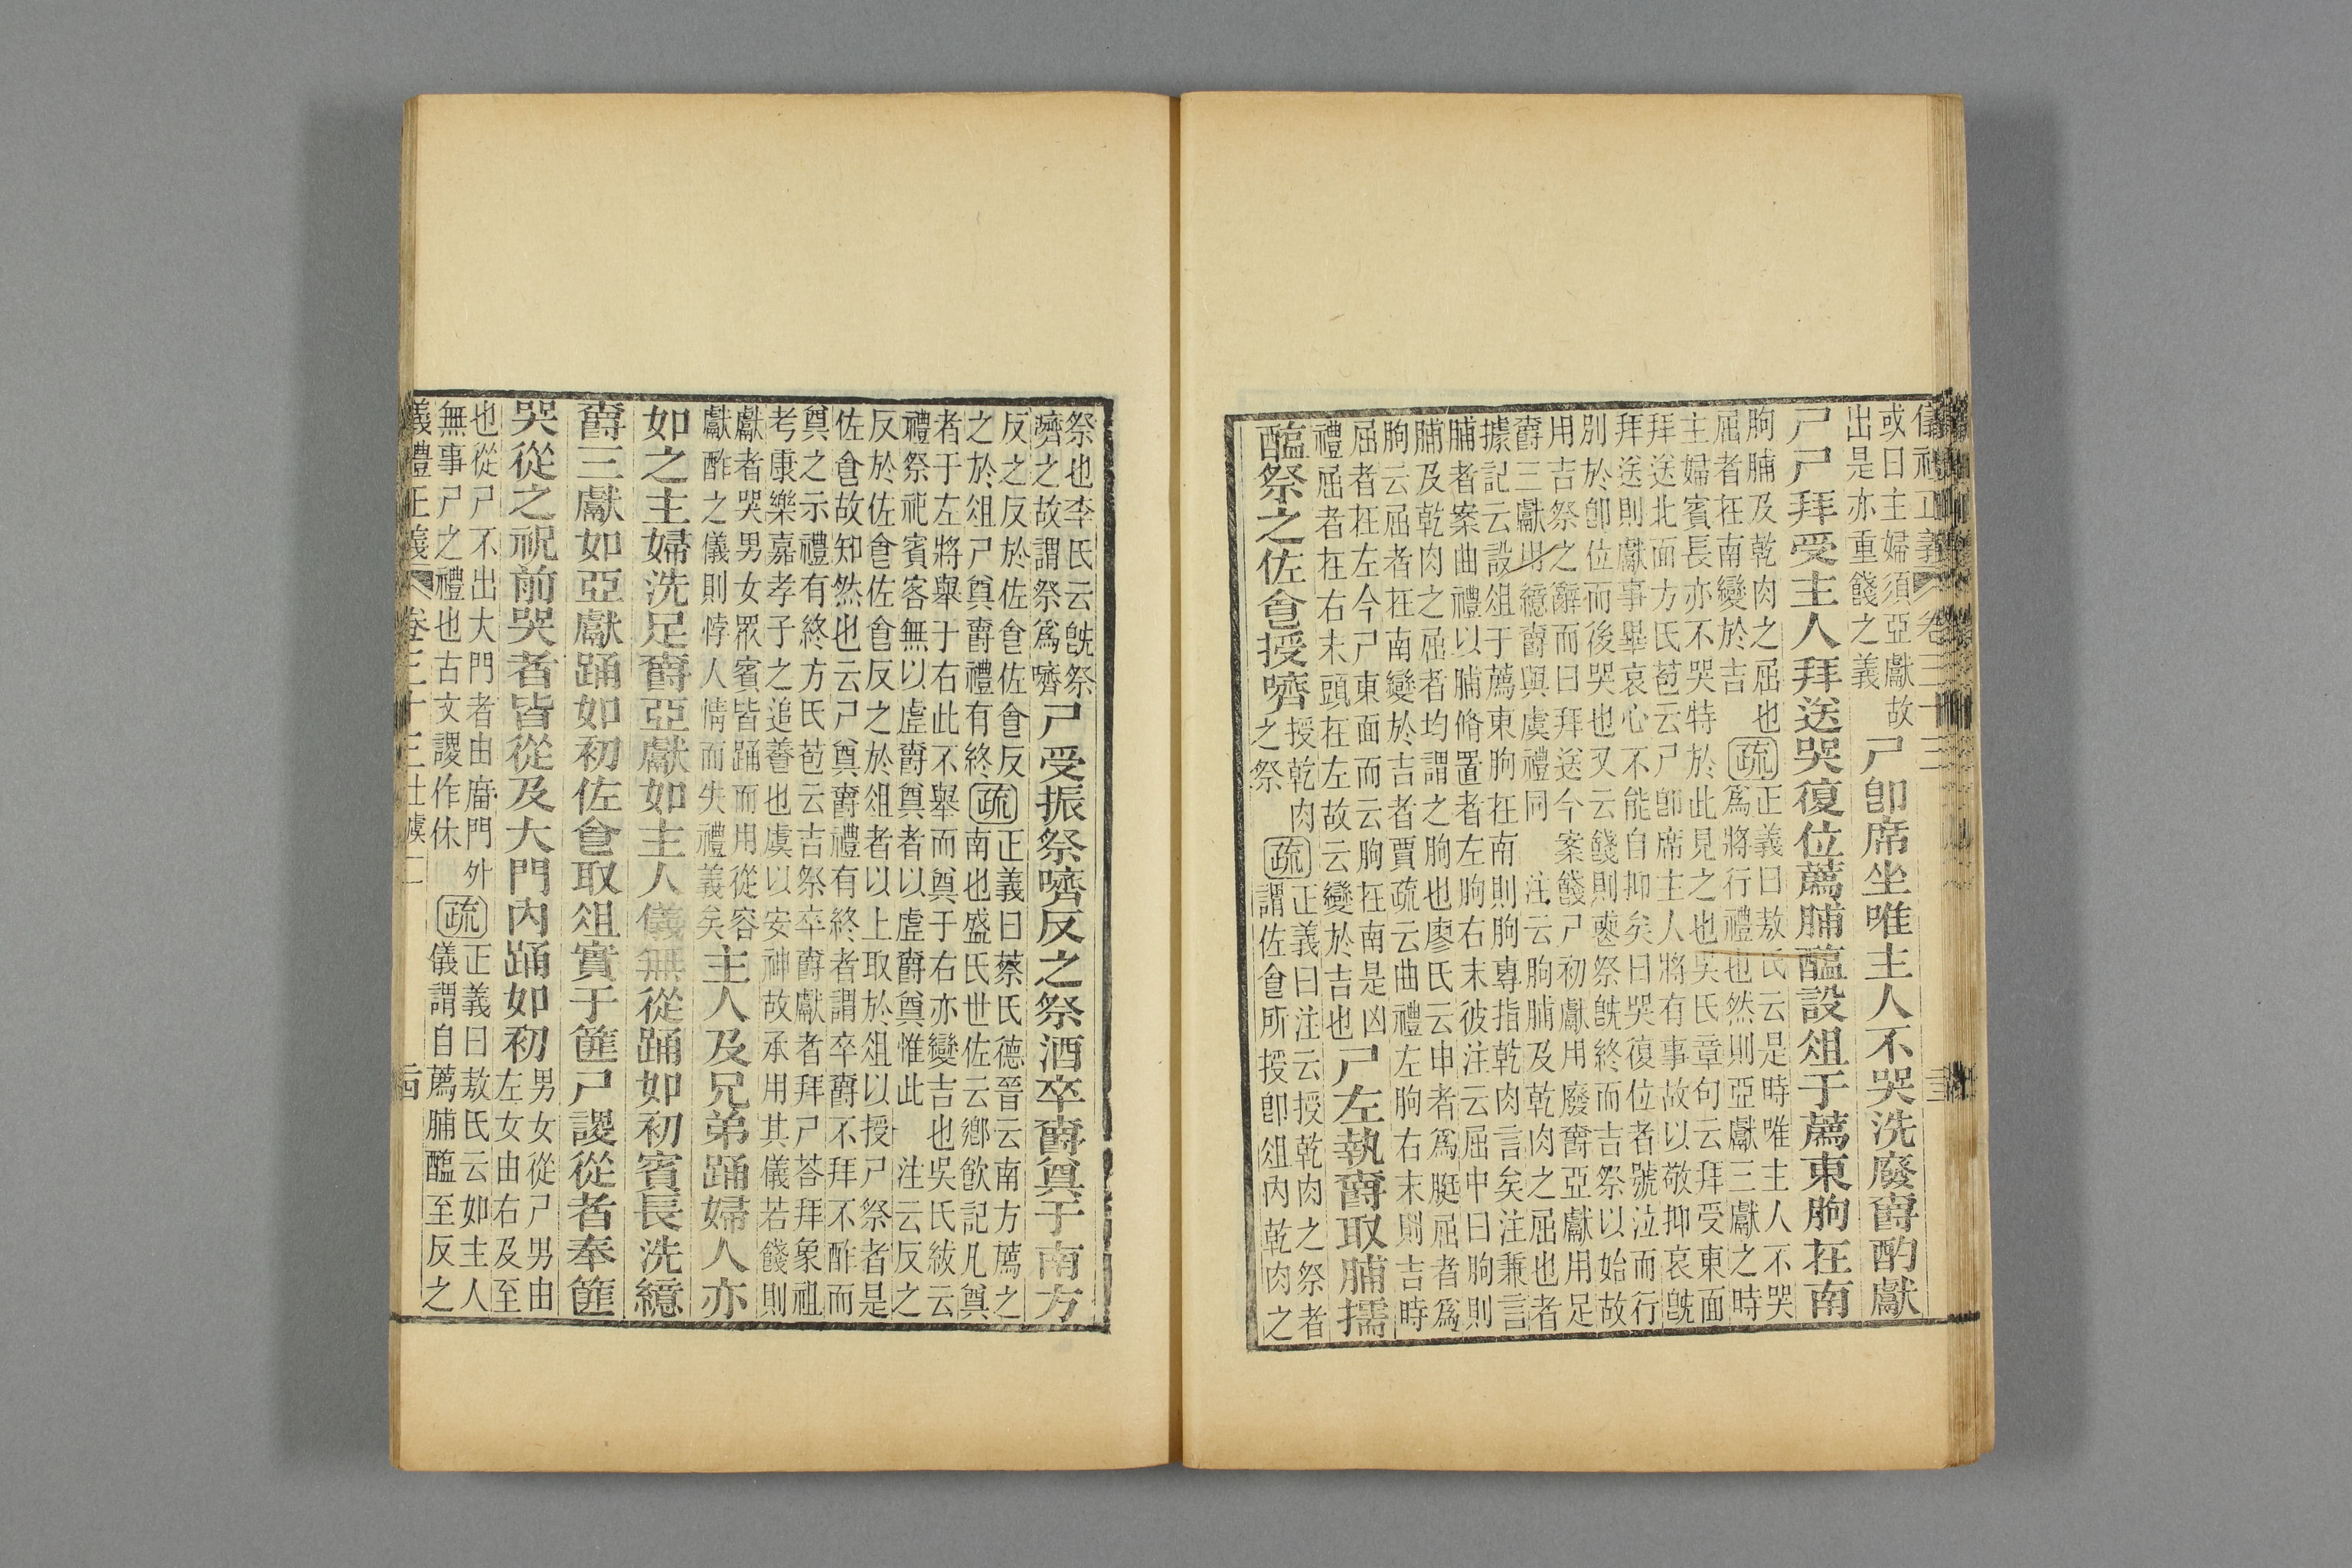 儀禮正義 卷三十三
或曰主婦須亞獻故
出是亦重餞之義
尸卽席坐唯主人不哭洗廢爵酌獻
尸尸拜受主人拜送哭復位薦脯醢設俎于薦東朐在南
朐脯及乾肉之屈也
屈者在南變於吉
疏
正義曰敖氏云是時唯主人不哭
爲將行禮也然則亞獻三獻之時
主婦賓長亦不哭特於此見之也吳氏章句云拜受東面
拜送北面方氏苞云尸卽席主人將有事故以敬抑哀旣
拜送則獻事畢哀心不能自抑矣曰哭復位者號泣而行
別於卽位而後哭也又云餞則喪祭旣終而吉祭以始故
用吉祭之辭而曰拜送今案餞尸初獻用廢爵亞獻用足
爵三獻用繶爵與虞禮同 注云朐脯及乾肉之屈也者
據記云設俎于薦東朐在南則朐專指乾肉言矣注兼言
脯者案曲禮以脯脩置者左朐右末彼注云屈中曰朐則
脯及乾肉之屈者均謂之朐也廖氏云申者爲脡屈者爲
朐云屈者在南變於吉者賈疏云曲禮左朐右末則吉時
屈者在左今尸東面而云朐在南是凶
禮屈者在右末頭在左故云變於吉也
尸左執爵取脯擩
醢祭之佐食授嚌
授乾肉
之祭
疏
正義曰注云授乾肉之祭者
謂佐食所授卽俎內乾肉之
祭也李氏云旣祭
嚌之故謂祭爲嚌
尸受振祭嚌反之祭酒卒爵奠于南方
反之反於佐食佐食反
之於俎尸奠爵禮有終
疏
正義曰蔡氏德晉云南方薦之
南也盛氏世佐云鄉飮記凡奠
者于左將舉于右此不舉而奠于右亦變吉也吳氏紱云
禮祭祀賓客無以虛爵奠者以虛爵奠惟此 注云反之
反於佐食佐食反之於俎者以上取於俎以授尸祭者是
佐食故知然也云尸奠爵禮有終者謂卒爵不拜不酢而
奠之示禮有終方氏苞云吉祭卒爵獻者拜尸荅拜象祖
考康樂嘉孝子之追養也虞以安神故承用其儀若餞則
獻者哭男女眾賓皆踊而用從容
獻酢之儀則悖人情而失禮義矣
主人及兄弟踊婦人亦
如之主婦洗足爵亞獻如主人儀無從踊如初賓長洗繶
爵三獻如亞獻踊如初佐食取俎實于篚尸謖從者奉篚
哭從之祝前哭者皆從及大門內踊如初
男女從尸男由
左女由右及至
也從尸不出大門者由廟門外
無事尸之禮也古文謖作休
疏
正義曰敖氏云如主人
儀謂自薦脯醢至反之
儀禮正義 卷三十三 士虞二